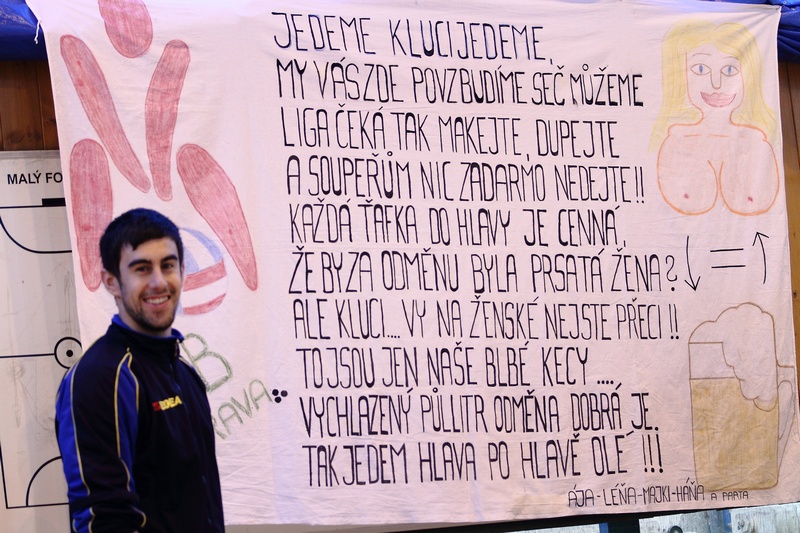 JEDEME KLUCI JEDEME,
MY VÁS ZDE POVZBUDÍME SEČ MŮŽEME
LIGA ČEKÁ TAK MAKEJTE, DUPEJTE
A SOUPEŘŮM NIC ZADARMO NEDEJTE!!
KAŽDÁ ŤAFKA DO HLAVY JE CENNÁ,
ŽE BY ZA ODMĚNU BYLA PRSATÁ ŽENA?
ALE KLUCI.... VY NA ŽENSKÉ NEJSTE PŘECI!!
TO JSOU JEN NAŠE BLBÉ KECY ....
VYCHLAZENÝ PŮLLITR ODMĚNA DOBRÁ JE.
TAK JEDEM HLAVA PO HLAVĚ OLÉ !!!
ÁJA-LÉŇA-MAJKI-HÁŇA A PARTA
↓ = ↑
MALÝ FO
B
RAVA